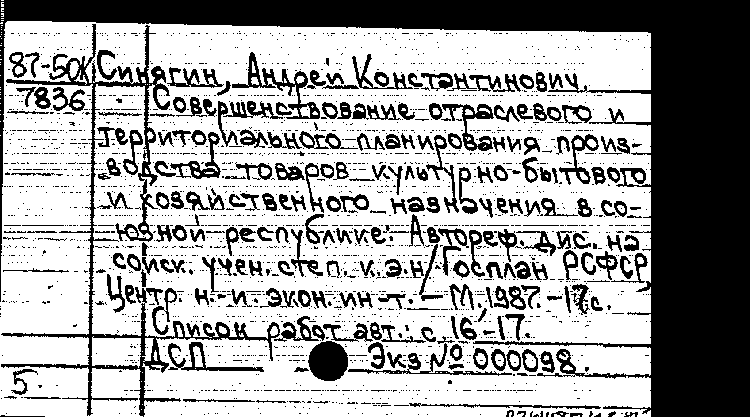 87-50К Синягин, Андрей Константинович.
7836 Совершенствование отраслевого и
территориального планирования произ-
водства товаров культурно-бытового
и хозяйственного назначения в со-
юзной республике: Автореф. дис. на
соиск. учен. степ. к.э.н/Госплан РСФСР,
Центр. н.-и. экон. ин-т. – М., 1987. – 17с.
Список работ авт.: с. 16-17.
ДСП Экз № 000098.
5.